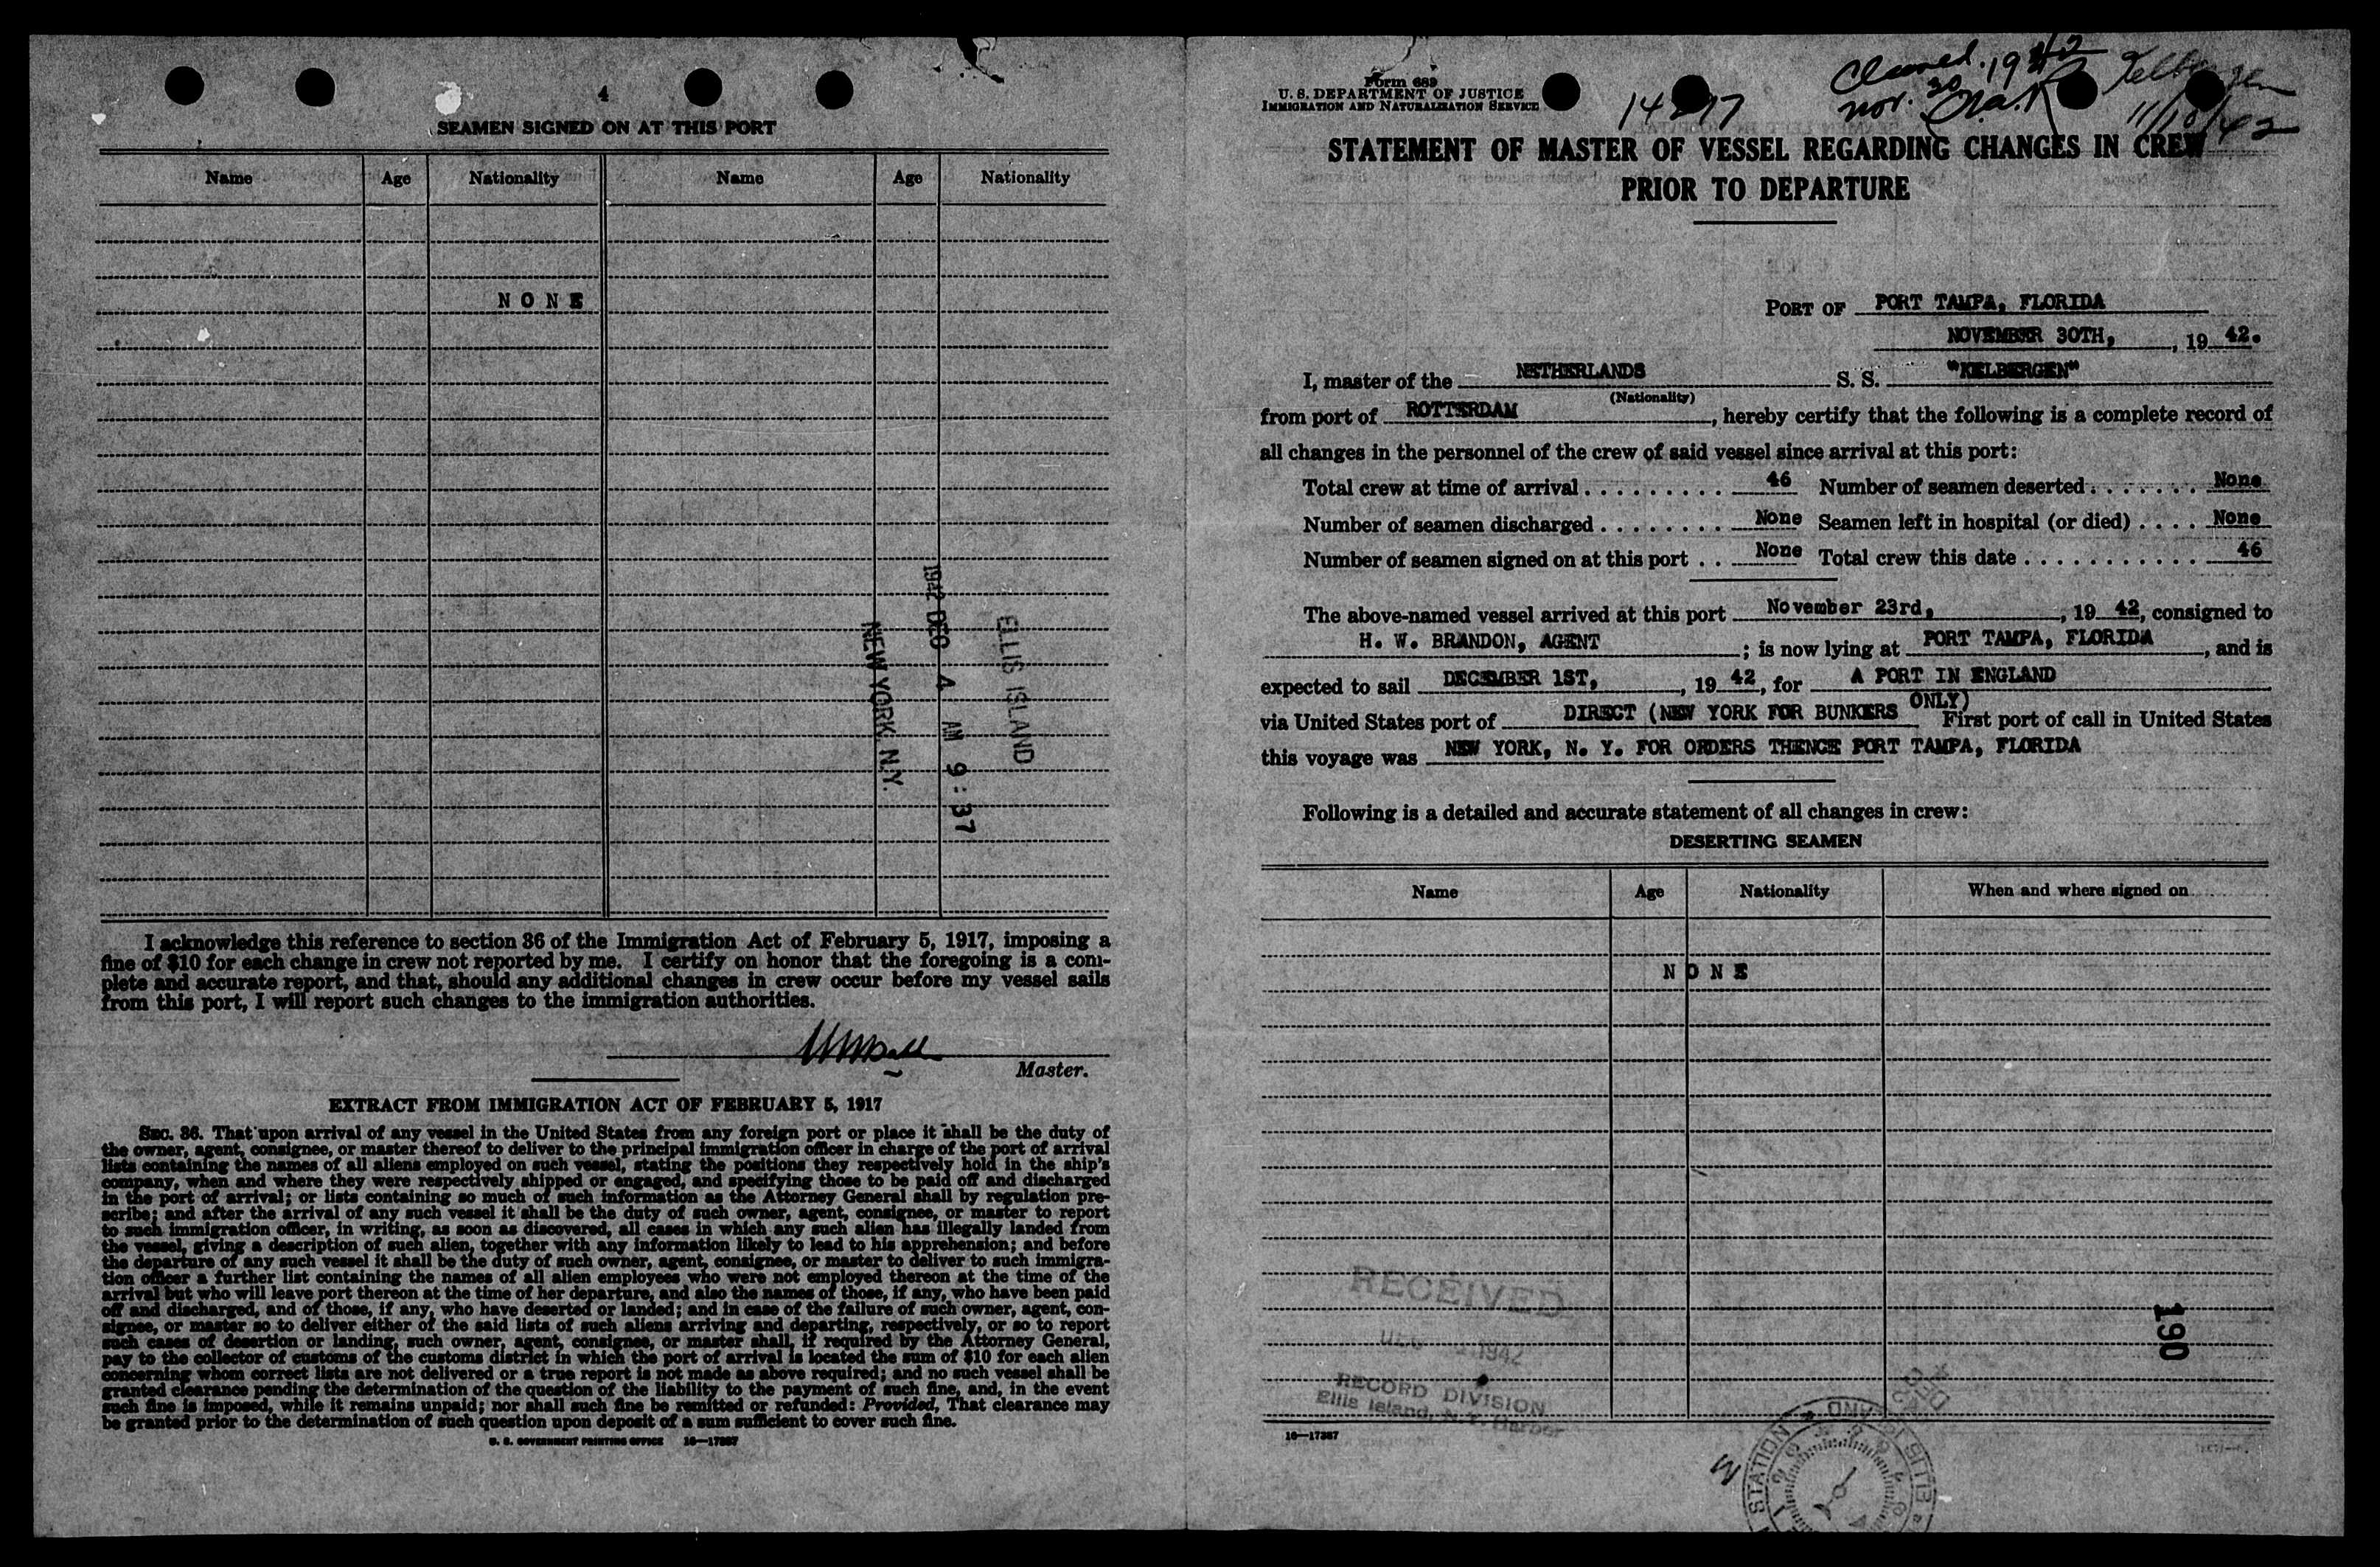 4
SEAMEN SIGNED ON AT THIS PORT
Name Age Nationality Name Age Nationality
NONE
ELLIS ISLAND
1942 DEC 4 AM 9:37
NEW YORK, N.Y.
I acknowledge this reference to section 36 of the Immigration Act of February 5, 1917, imposing a
fine of $10 for each change in crew not reported by me. I certify on honor that the foregoing is a com-
plete and accurate report, and that, should any additional changes in crew occur before my vessel sails
from this port, I will report such changes to the immigration authorities.
Master.
EXTRACT FROM IMMIGRATION ACT OF FEBRUARY 5, 1917
SEC. 36. That upon arrival of any vessel in the United States from any foreign port or place it shall be the duty of
the owner, agent, consignee, or master thereof to deliver to the principal immigration officer in charge of the port of arrival
lists containing the names of all aliens employed on such vessel, stating the positions they respectively hold in the ship's
company, when and where they were respectively shipped or engaged, and specifying those to be paid off and discharged
in the port of arrival; or lists containing so much of such information as the Attorney General shall by regulation pre-
scribe; and after the arrival of any such vessel it shall be the duty of such owner, agent, consignee, or master to report
to such immigration officer, in writing, as soon as discovered, all cases in which any such alien has illegally landed from
the vessel, giving a description of such alien, together with any information likely to lead to his apprehension; and before
the departure of any such vessel it shall be the duty of such owner, agent, consignee, or master to deliver to such immigra-
tion officer a further list containing the names of all alien employees who were not employed thereon at the time of the
arrival but who will leave port thereon at the time of her departure, and also the names of those, if any, who have been paid
off and discharged, and of those, if any, who have deserted or landed; and in case of the failure of such owner, agent, con-
signee, or master so to deliver either of the said lists of such aliens arriving and departing, respectively, or so to report
such cases of desertion or landing, such owner, agent, consignee, or master shall, if required by the Attorney General,
pay to the collector of customs of the customs district in which the port of arrival is located the sum of $10 for each alien
concerning whom correct lists are not delivered or a true report is not made as above required; and no such vessel shall be
granted clearance pending the determination of the question of the liability to the payment of such fine, and, in the event
such fine is imposed, while it remains unpaid; nor shall such fine be remitted or refunded: Provided, That clearance may
be granted prior to the determination of such question upon deposit of a sum sufficient to cover such fine.
U. S. GOVERNMENT PRINTING OFFICE 16—17387
Form 689
U. S. DEPARTMENT OF JUSTICE
IMMIGRATION AND NATURALIZATION SERVICE
Cleared. 1942
Nov. 30
11/10/42
STATEMENT OF MASTER OF VESSEL REGARDING CHANGES IN CREW
PRIOR TO DEPARTURE
PORT OF PORT TAMPA, FLORIDA
NOVEMBER 30TH, , 19 42.
I, master of the NETHERLANDS S. S. "KELBERGEN"
(Nationality)
from port of ROTTERDAM , hereby certify that the following is a complete record of
all changes in the personnel of the crew of said vessel since arrival at this port:
Total crew at time of arrival . . . . . . . . . 46 Number of seamen deserted . . . . . . . None
Number of seamen discharged . . . . . . . . None Seamen left in hospital (or died) . . . . None
Number of seamen signed on at this port . . None Total crew this date . . . . . . . . . . . 46
The above-named vessel arrived at this port November 23rd, , 19 42, consigned to
H. W. BRANDON, AGENT ; is now lying at PORT TAMPA, FLORIDA , and is
expected to sail DECEMBER 1ST, , 19 42, for A PORT IN ENGLAND
via United States port of DIRECT (NEW YORK FOR BUNKERS ONLY) First port of call in United States
this voyage was NEW YORK, N. Y. FOR ORDERS THENCE PORT TAMPA, FLORIDA
Following is a detailed and accurate statement of all changes in crew:
DESERTING SEAMEN
Name Age Nationality When and where signed on
NONE
RECEIVED
1942
RECORD DIVISION
Ellis Island, N. Y. Harbor
190
16—17387